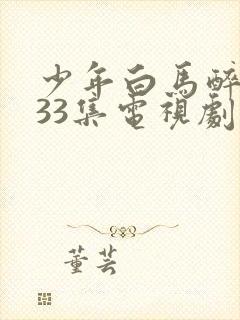 少年白馬醉
33集電視劇
董芸